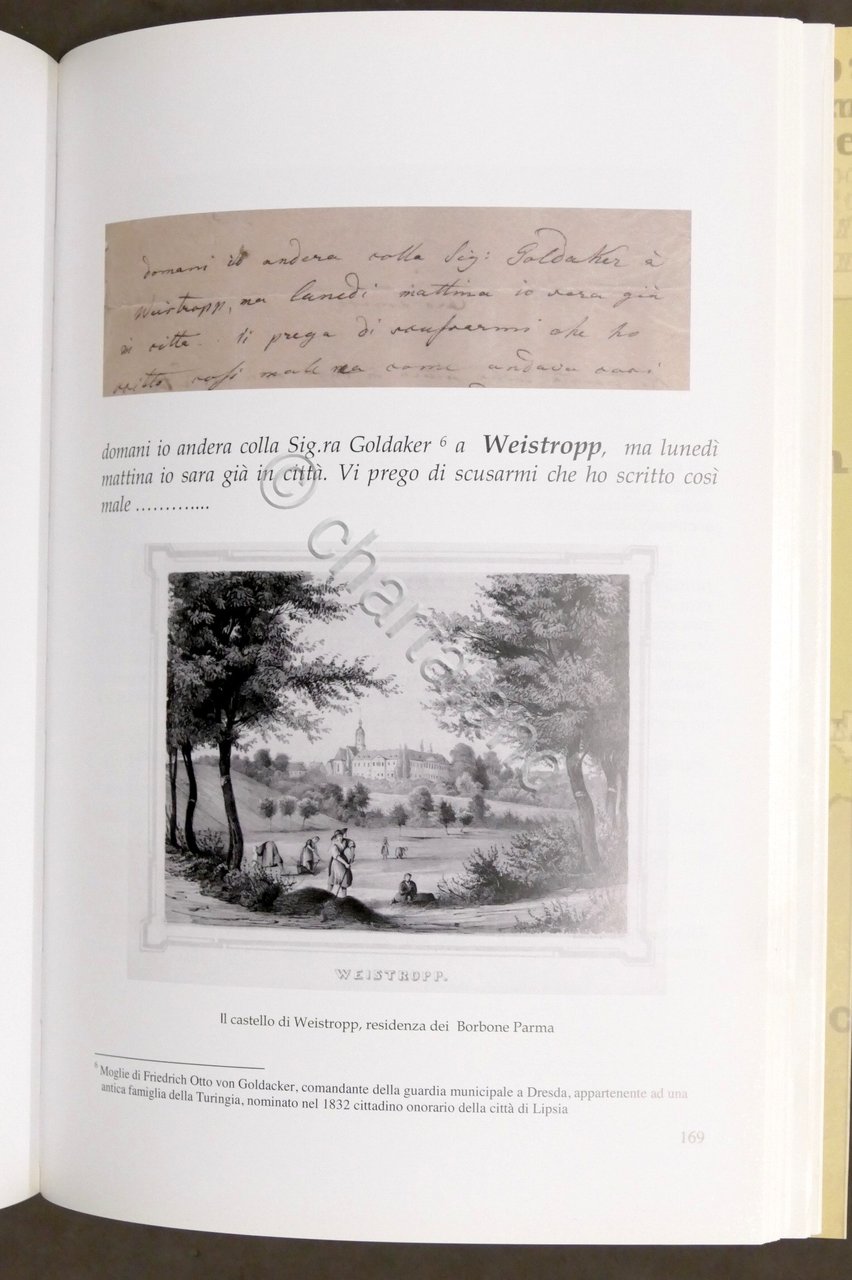 domani io andera colla Sig: Goldaker à
Weistropp, ma lunedi mattina io sara già
in citta.. Vi prega di scusarmi che ho
scritto cosi male come andava
domani io andera colla Sig.ra Goldaker ⁶ a Weistropp, ma lunedì
mattina io sara già in città. Vi prego di scusarmi che ho scritto così
male ..............
WEISTROPP.
Il castello di Weistropp, residenza dei Borbone Parma
⁶ Moglie di Friedrich Otto von Goldacker, comandante della guardia municipale a Dresda, appartenente ad una
antica famiglia della Turingia, nominato nel 1832 cittadino onorario della città di Lipsia
169